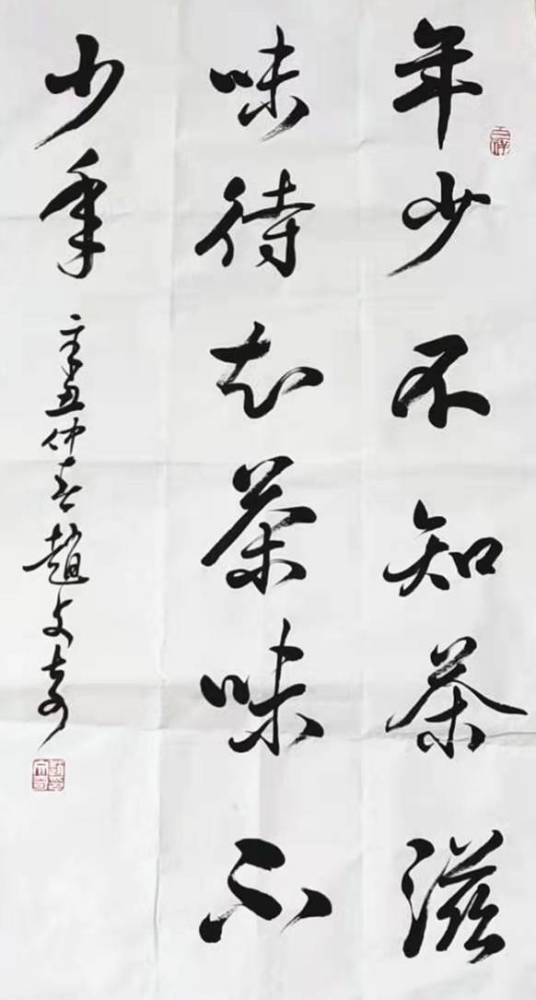 年少不知茶滋
味待知茶味不
少年
辛丑仲春趙文奇